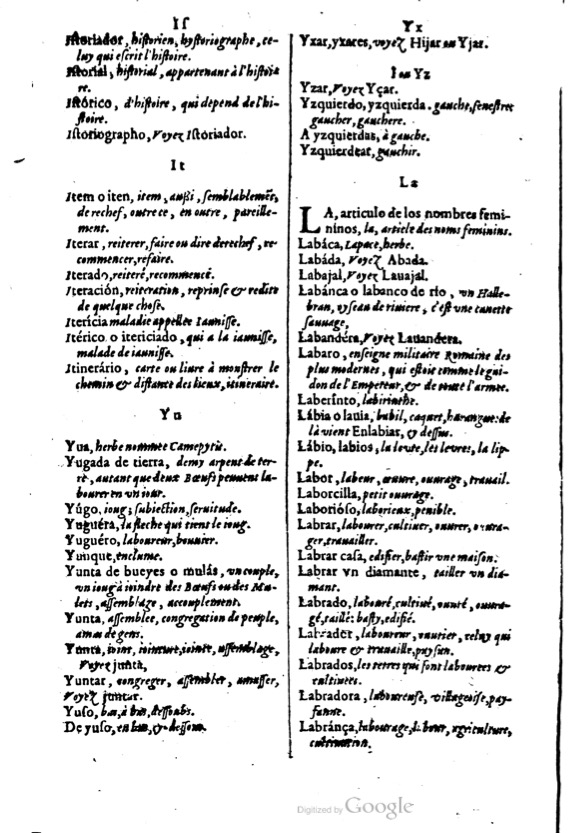 Is
Istoriador, historien, hystoriographe, ce-
luy qui escrit l'histoire.
Istorial, historial, appartenant à l'histoi-
re.
Istórico, d'histoire, qui depend de l'hi-
stoire.
Istoriographo, Voyez Istóriador.
It
Item o iten, item, aussi, semblablement,
de rechef, outre ce, en outre, pareille-
ment.
Iterar, reiterer, faire ou dire derechef, re-
commencer, refaire.
Iterado, reiteré, recommencé.
Iteración, reiteration, reprinse & redite
de quelque chose.
Iterícia maladie appellee Iaunisse.
Itérico o itericiado, qui a la iaunisse,
malade de iaunisse.
Itinerário, carte ou liure à monstrer le
chemin & distance des lieux, itineraire.
Yu
Yua, herbe nommee Camepytis.
Yugada de tierra, demy arpent de ter-
re, autant que deux Bœufs peuuent la-
bourer en vn iour.
Yúgo, ioug; subiection, seruitude.
Yuguéra, la fleche qui tient le ioug.
Yuguéro, laboureur, bouuier.
Yunque, enclume.
Yunta de bueyes o mulás, vn couple,
vn ioug à ioindre des Bœufs ou des Mu-
lets, assemblage, accouplement.
Yunta, assemblee, congregation de peuple,
amas de gens.
Yunta, ioint, iointure, iointe, assemblage,
Voyez junta,
Yuntar, congreger, assembler, amasser,
Voyez juntar.
Yuso, bas, à bas, dessoubs.
De yuso, en bas, & dessous.
Yx
Yxar, yxares, voyez Hijar ou Yjar.
I ou Yz
Yzar, Voyez Yçar.
Yzquierdo, yzquierda. gauche, senestre
gaucher, gauchere.
A yzquierdas, à gauche.
Yzquierdear, gauchir.
La
LA, articulo de los nombres femi-
ninos, la, article des noms feminins.
Labáca, Lapace, herbe.
Labáda, Voyez Abada.
Labajal, Voyez Lauajal.
Labánca o labanco de río, vn Halle-
bran, oyseau de riuiere, c'est vne canette
sauuage,
Labandéra, Voyez Lauandera.
Labaro, enseigne militaire Romaine des
plus modernes, qui estoit comme le gui-
don de l'Empereur, & de toute l'armee.
Laberínto, labirinthe.
Lábia o lauia, babil, caquet, harangue: de
là vient Enlabiar, & dessus.
Lábio, labios, la leure, les leures, la lip-
pe.
Labor, labeur, œuure, ouurage, trauail.
Laborcilla, petit ouurage.
Laborióso, laborieux, penible.
Labrar, labourer, cultiuer, ouurer, ouura-
ger, trauailler.
Labrar casa, edifier, bastir vne maison.
Labrar vn diamante, tailler vn dia-
mant.
Labrado, labouré, cultiué, ouuré, ouura-
gé, taillé: basty, edifié.
Labrador, laboureur, ouurier, celuy qui
laboure & trauaille, paysan.
Labrados, les terres qui sont labourees &
cultiuees.
Labradora, laboureuse, villageoise, pay-
sanne.
Labránça, labourage, labeur, agriculture,
cultiuation.
Digitized by Google